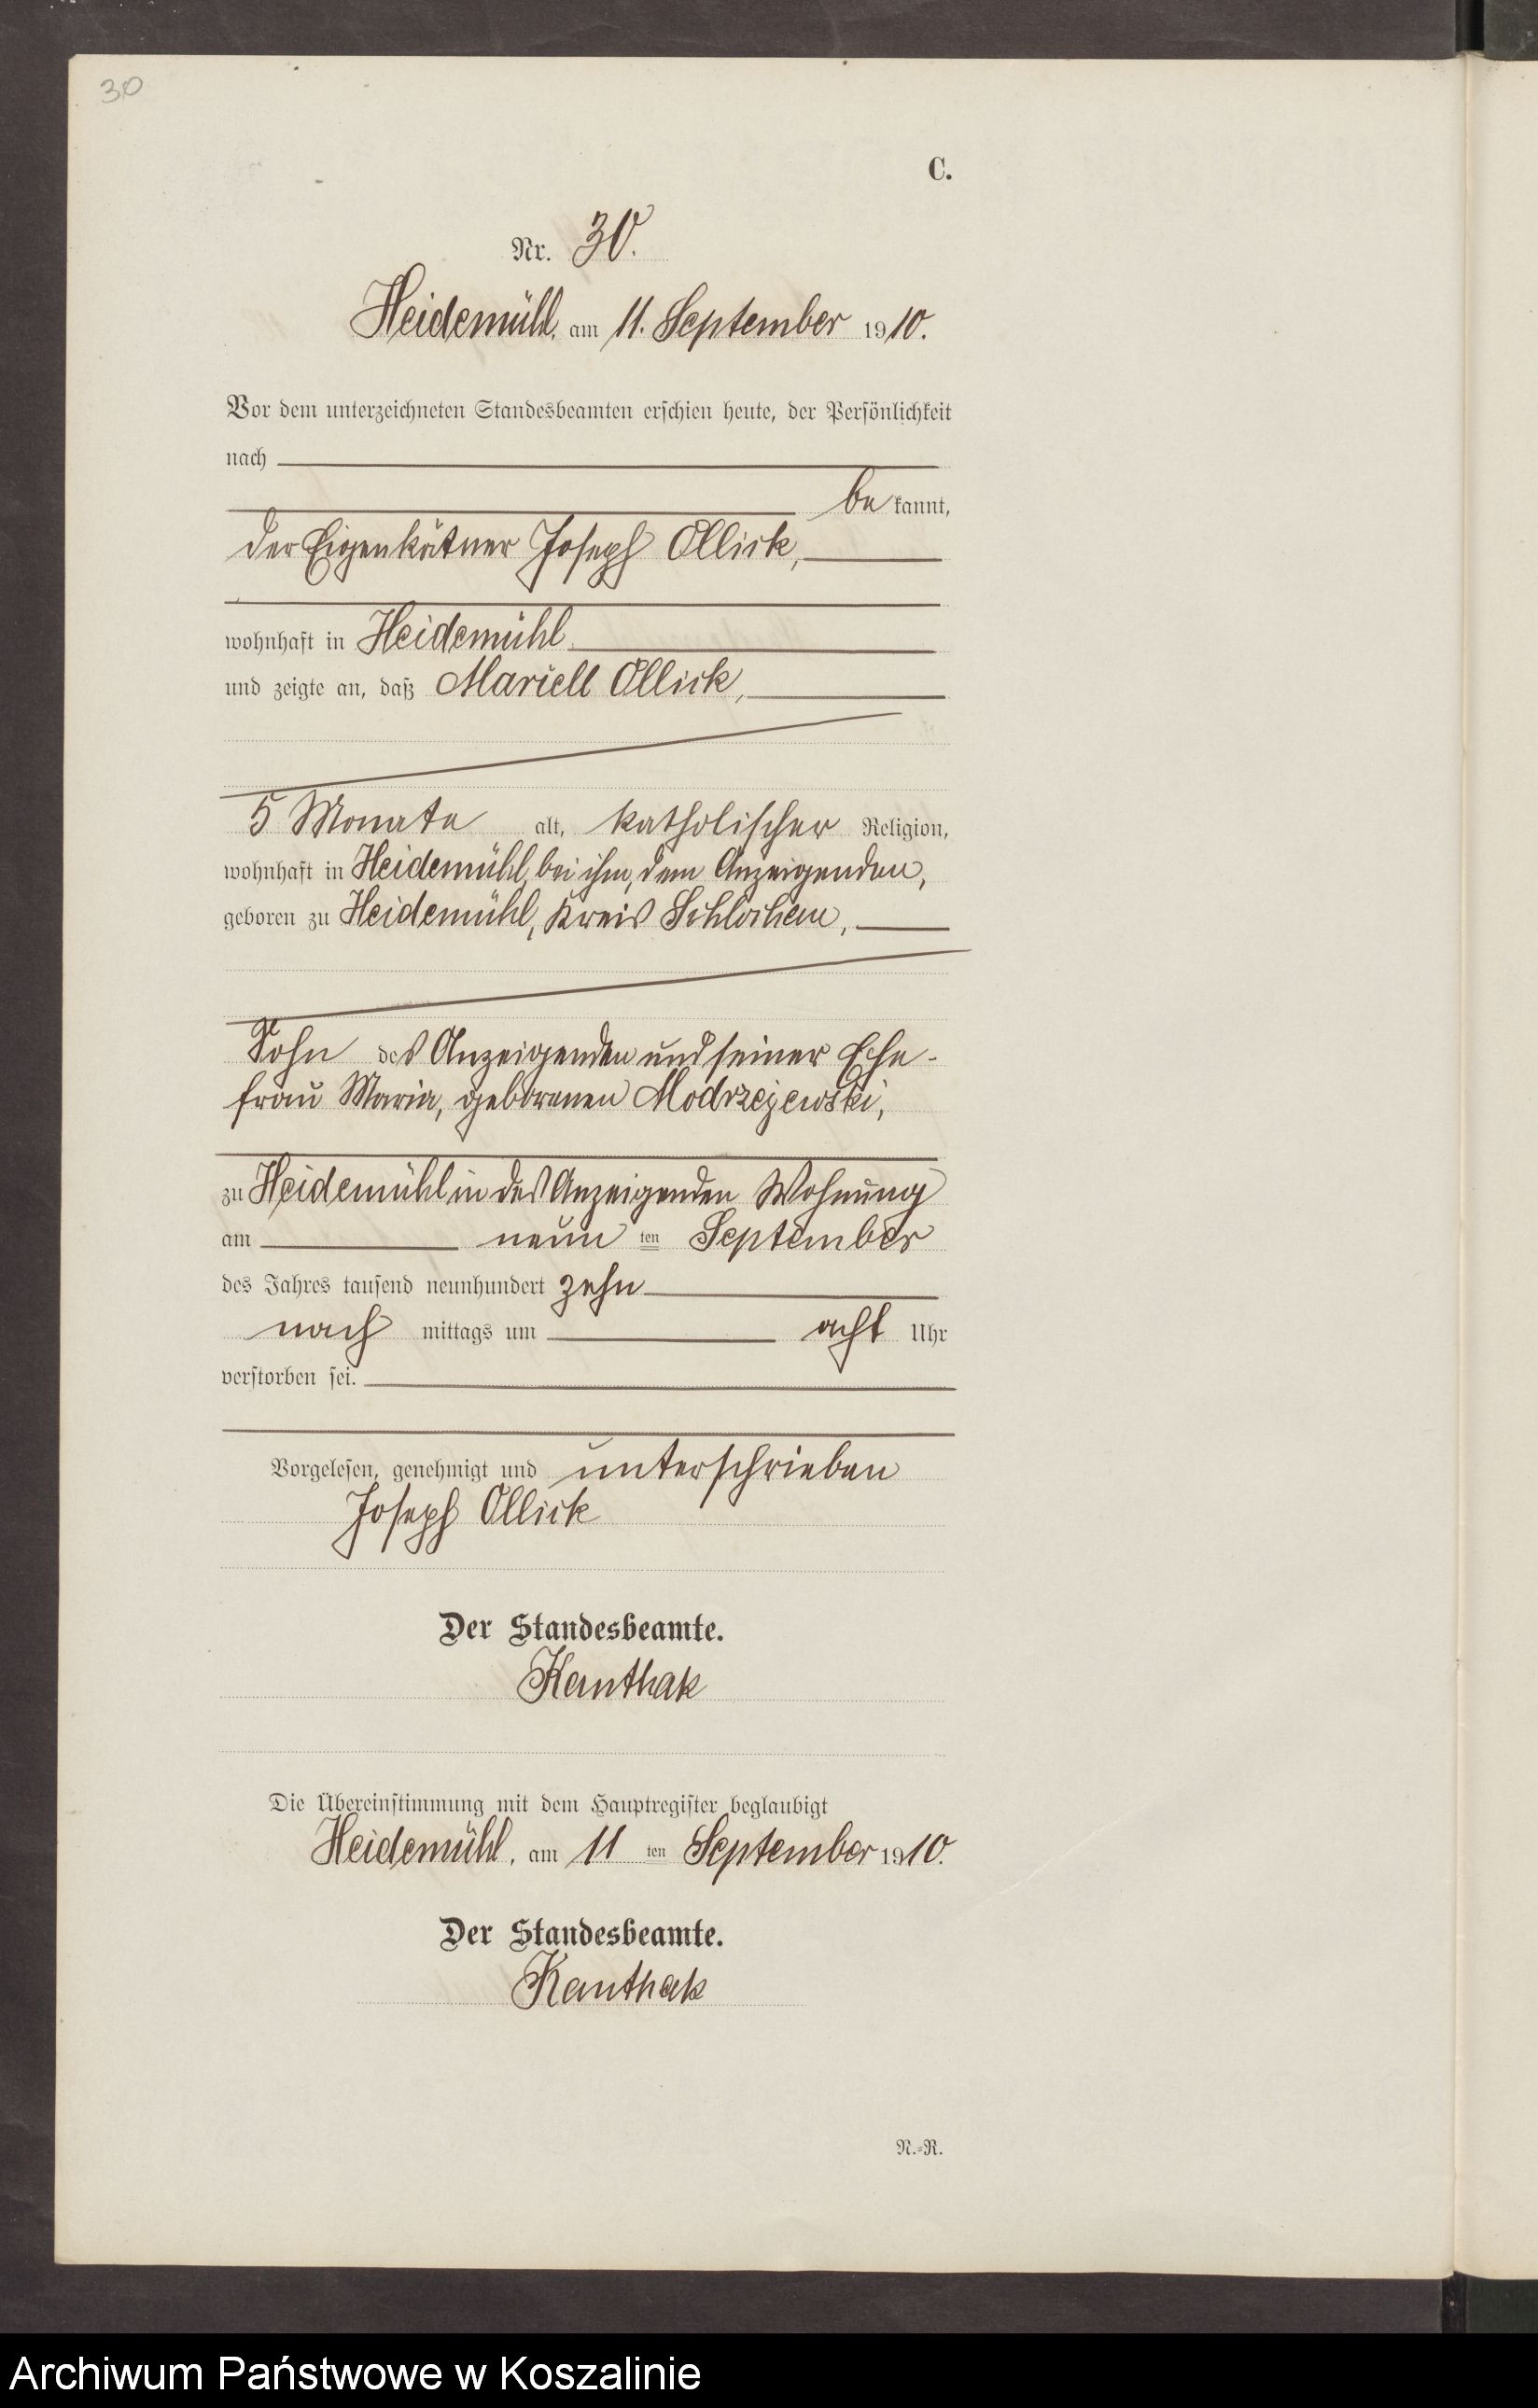 30
C.
Nr. 30.
Heidemühl, am 11. September 1910.
Vor dem unterzeichneten Standesbeamten erschien heute, der Persönlichkeit
nach
be kannt,
der Eigenkätner Joseph Ollick,
wohnhaft in Heidemühl
und zeigte an, daß Mariell Ollick,
5 Monate alt, katholischer Religion,
wohnhaft in Heidemühl, bei ihm, dem Anzeigenden,
geboren zu Heidemühl, Kreis Schlochau,
Sohn des Anzeigenden und seiner Ehe-
frau Maria, geborenen Modrzejewski,
zu Heidemühl in des Anzeigenden Wohnung
am neun ten September
des Jahres tausend neunhundert zehn
nach mittags um acht Uhr
verstorben sei.
Vorgelesen, genehmigt und unterschrieben
Joseph Ollick
Der Standesbeamte.
Kanthak
Die Übereinstimmung mit dem Hauptregister beglaubigt
Heidemühl, am 11 ten September 1910.
Der Standesbeamte.
Kanthak
N.-R.
Archiwum Państwowe w Koszalinie